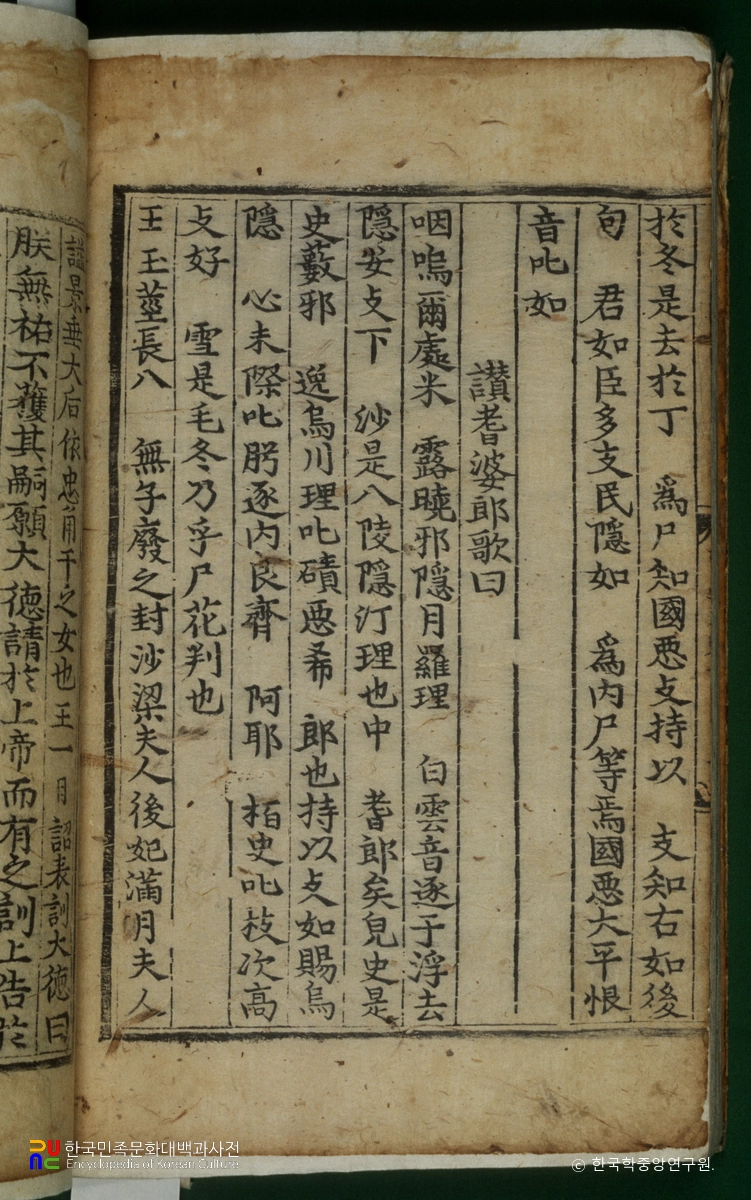 於冬是去於丁 爲尸知國惡攴持以 支知右如後
句 君如臣多支民隱如 爲內尸等焉國惡大平恨
音叱如
讃耆婆郎歌曰
咽嗚爾處米 露曉邪隱月羅理 白雲音逐于浮去
隱安攴下 沙是八陵隱汀理也中 耆郎矣皃史是
史藪邪 逸烏川理叱磧惡希 郎也持以攴如賜烏
隱 心未際叱肹逐內良齊 阿耶 栢史叱枝次高
攴好 雪是毛冬乃乎尸花判也
王玉莖長八 無子廢之封沙梁夫人後妃滿月夫人
諡景垂大后依忠角干之女也王一日詔表訓大德曰
朕無祐不獲其嗣願大德請於上帝而有之訓上告於
한국민족문화대백과사전
Encyclopedia of Korean Culture
© 한국학중앙연구원.